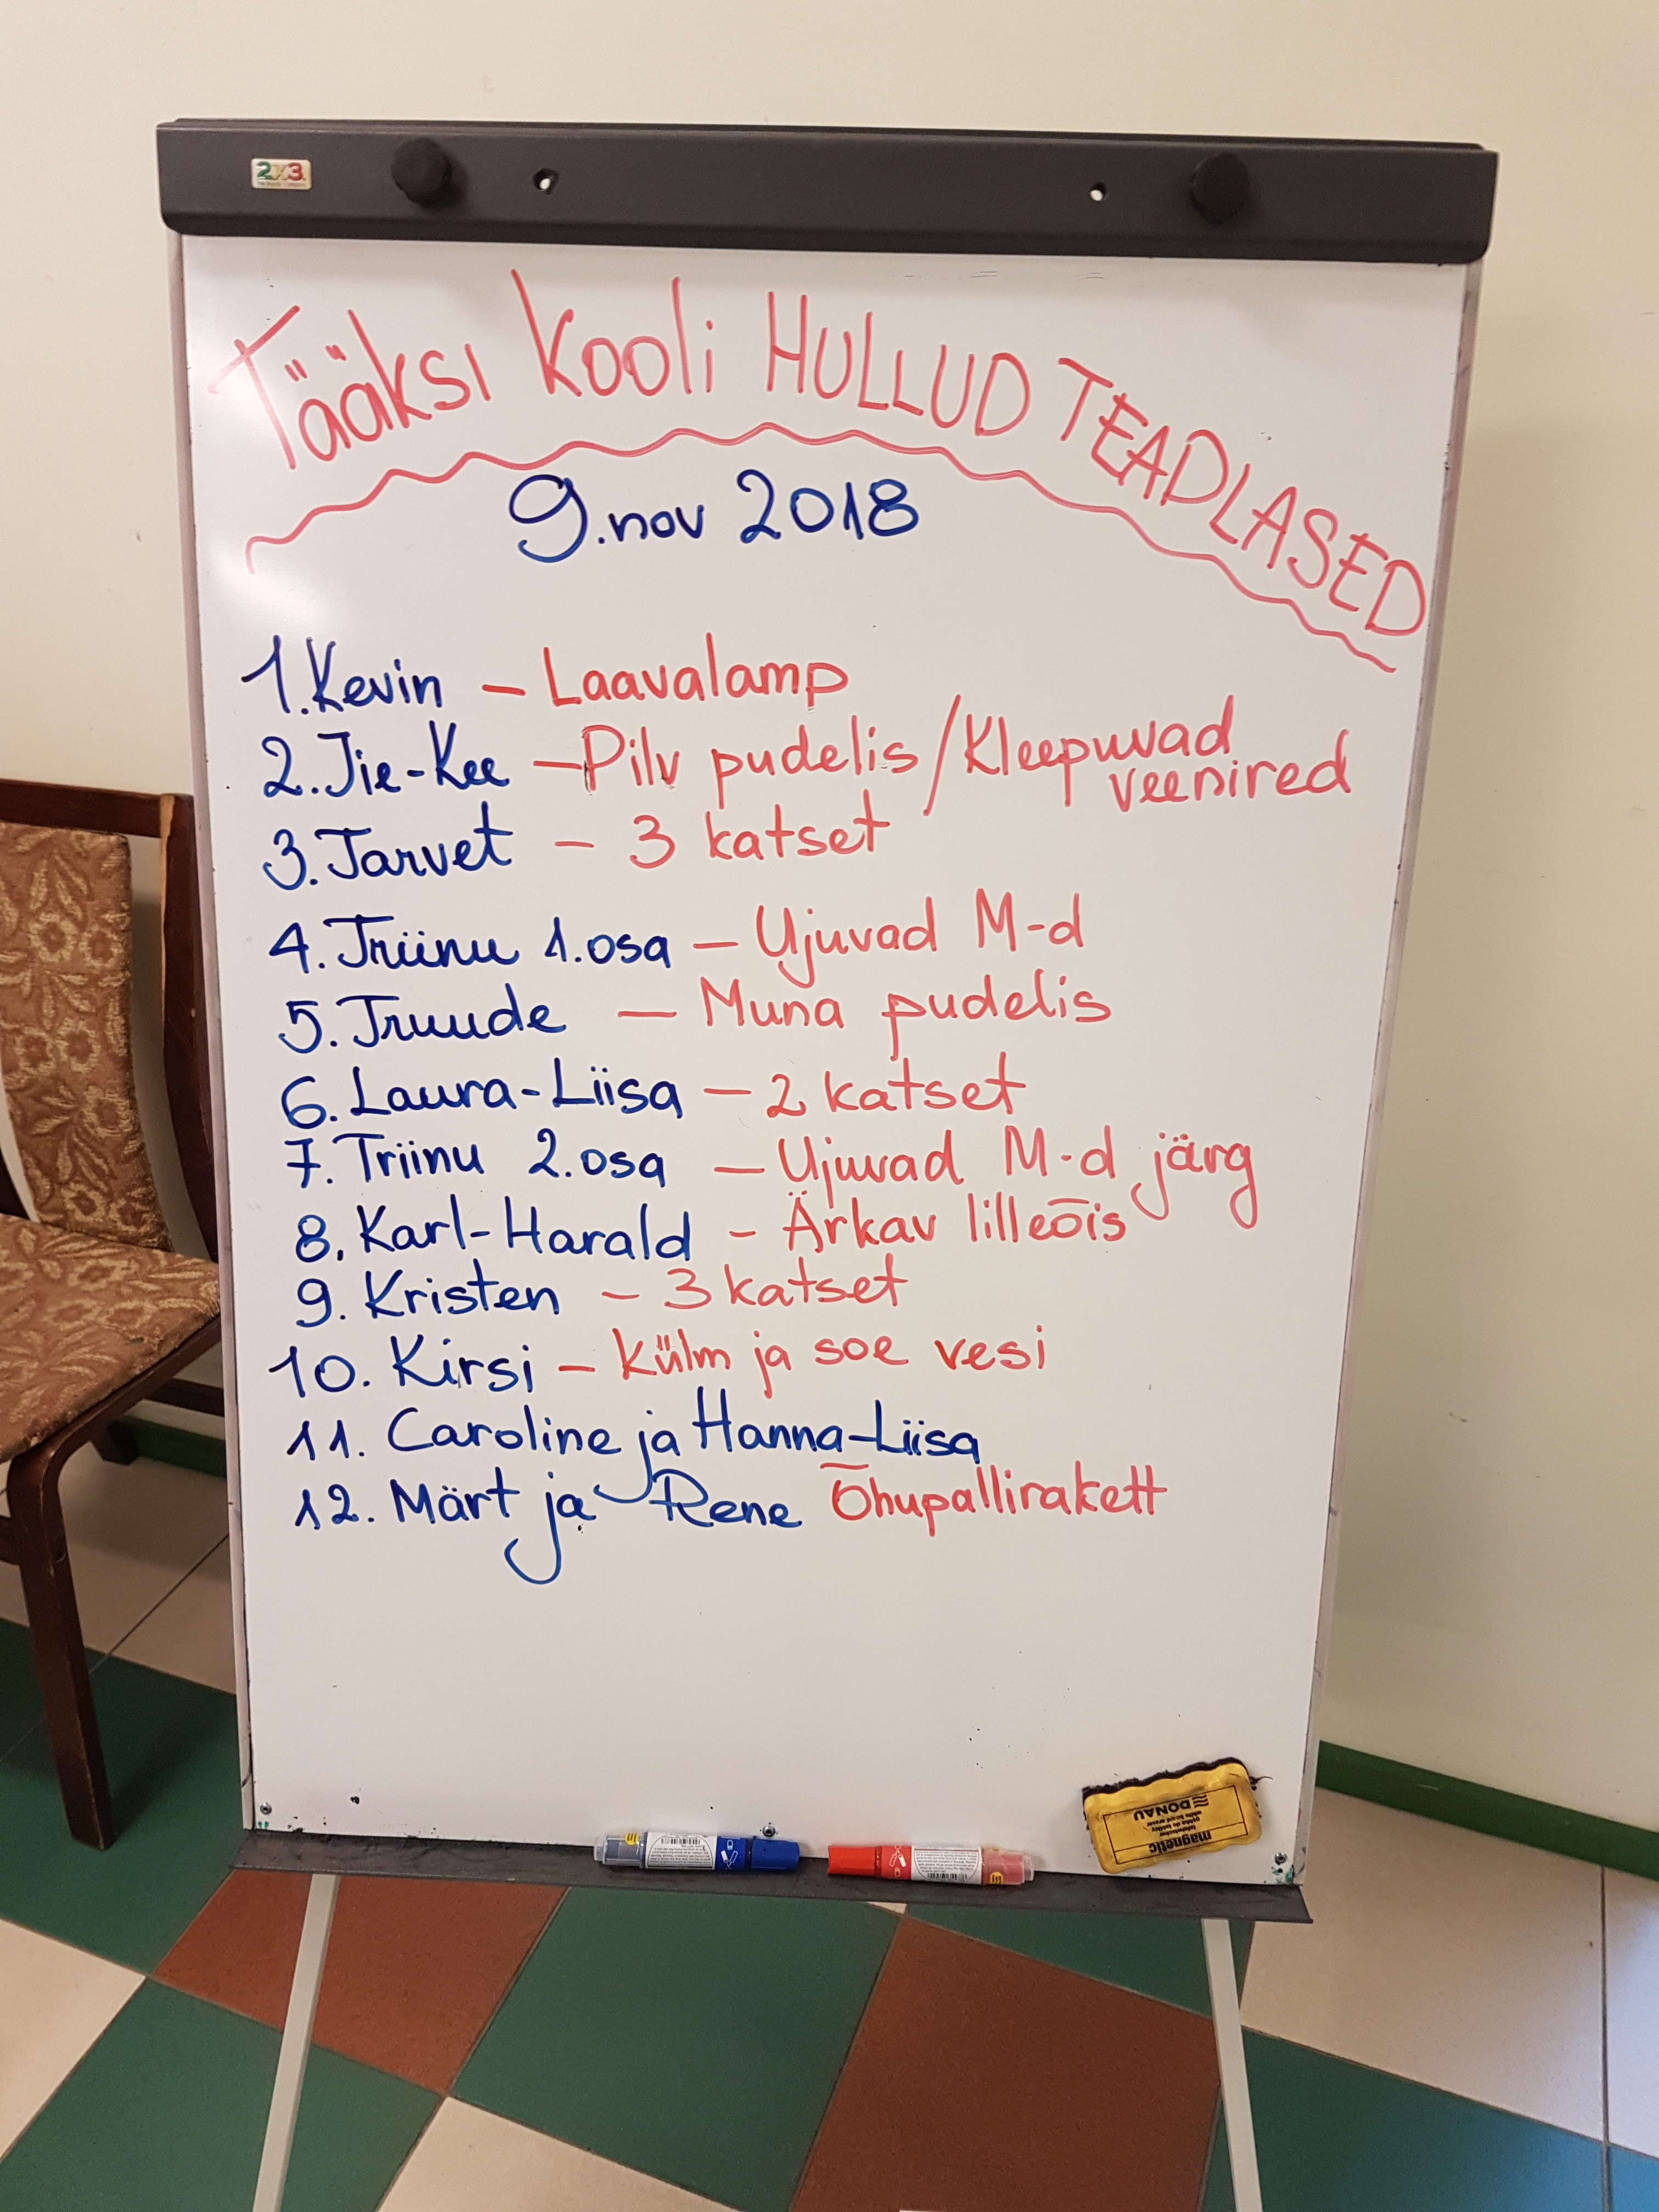 2x3
Tääksi Kooli HULLUD TEADLASED
9.nov 2018
1.Kevin – Laavalamp
2.Jie-Kee – Pilv pudelis / Kleepuvad
veenired
3.Tarvet – 3 katset
4.Triinu 1.osa – Ujuvad M-d
5.Truude – Muna pudelis
6.Laura-Liisa – 2 katset
7.Triinu 2.osa – Ujuvad M-d järg
8.Karl-Harald – Ärkav lilleõis
9.Kristen – 3 katset
10. Kirsi – Külm ja soe vesi
11. Caroline ja Hanna-Liisa
12. Märt ja Rene Õhupallirakett
magnetic
DONAU